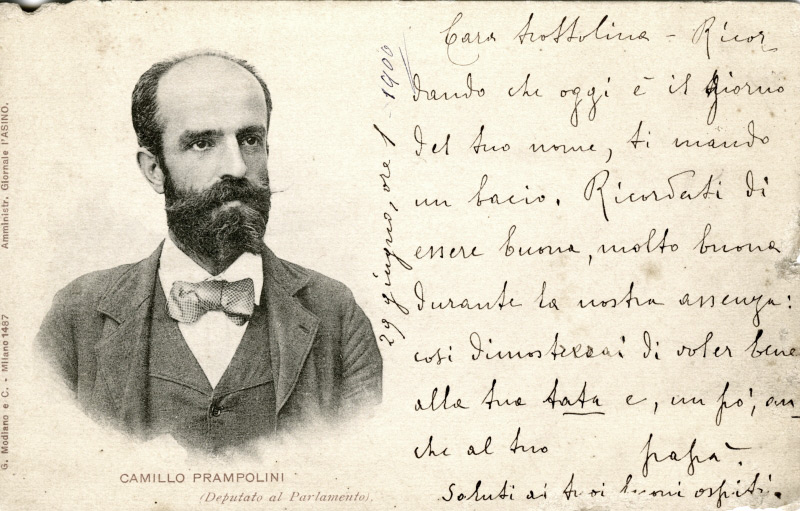 G. Modiano e C. - Milano 1487 Amministr. Giornale l'ASINO.
CAMILLO PRAMPOLINI
(Deputato al Parlamento).
29 giugno, ore 1 - 1900
Cara trottolina - Ricor
dando che oggi è il giorno
del tuo nome, ti mando
un bacio. Ricordati di
essere buona, molto buona
durante la nostra assenza:
così dimostrerai di voler bene
alla tua tata e, un pò, an-
che al tuo papà.
Saluti ai tuoi buoni ospiti.